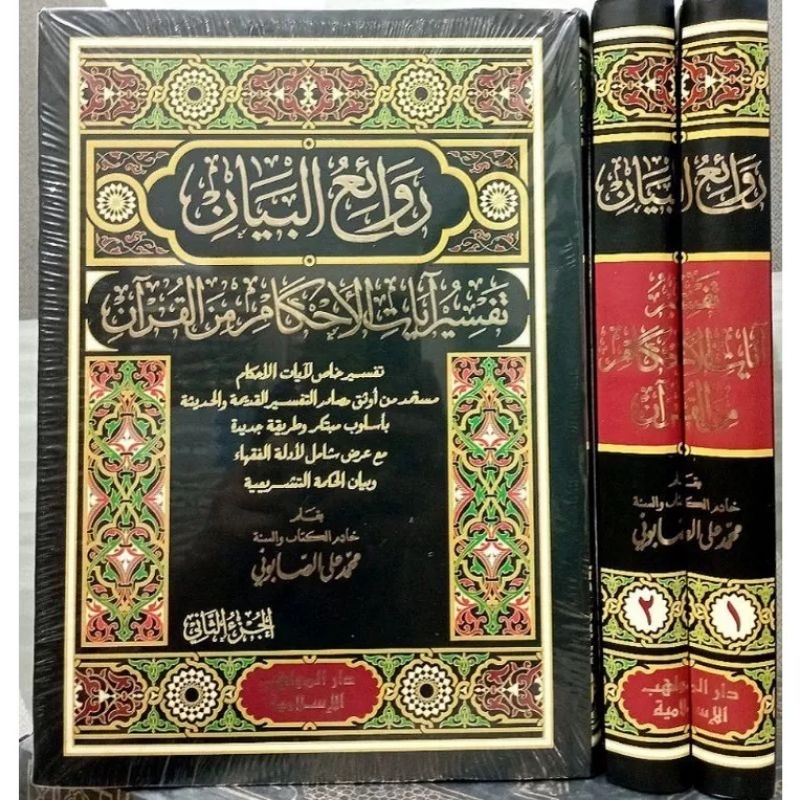 روائع البيان
تفسير آيات الأحكام من القرآن
تفسير خاص لآيات الأحكام
مستمد من أوثق مصادر التفسير القديمة والحديثة
بأسلوب مبتكر وطريقة جديدة
مع عرض شامل لأدلة الفقهاء
وبيان الحكمة التشريعية
بقلم
خادم الكتاب والسنة
محمد علي الصابوني
الجزء الثاني
دار المواهب
الإسلامية
روائع البيان
تفسير
آيات الأحكام
من القرآن
بقلم
خادم الكتاب والسنة
محمد علي الصابوني
٢ ١
دار المواهب
الإسلامية